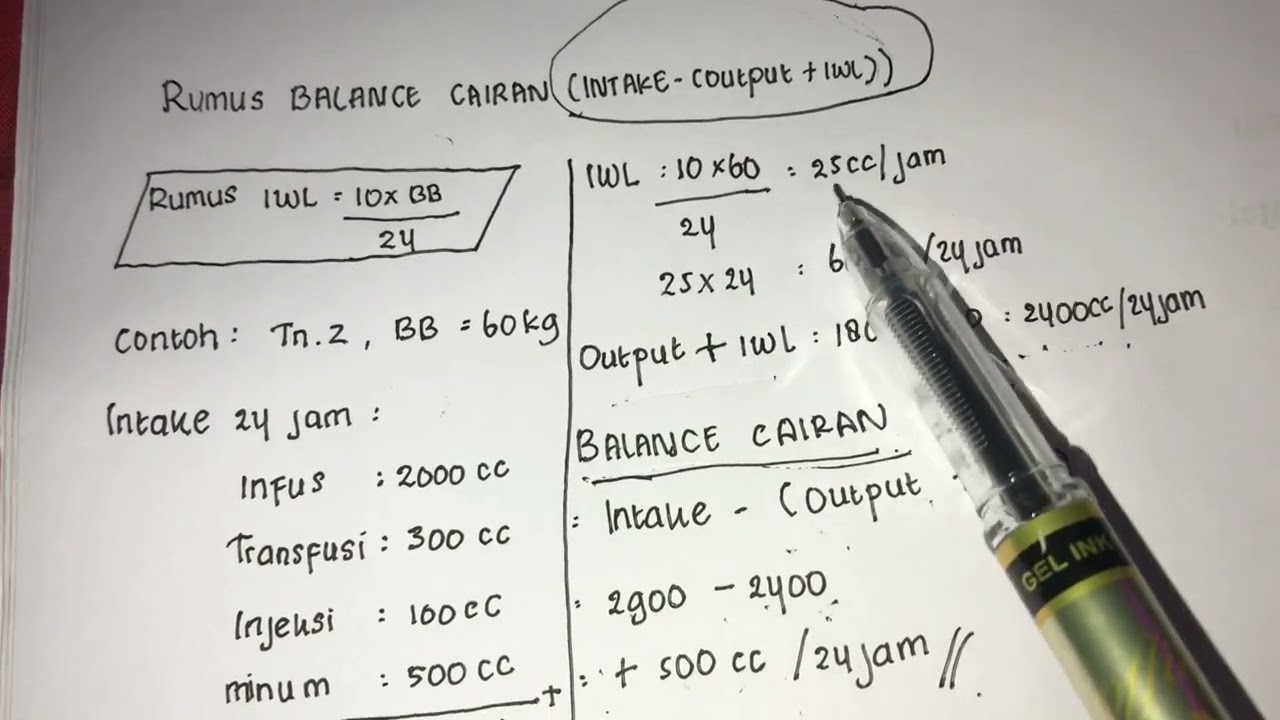 Rumus BALANCE CAIRAN (INTAKE - (Output + IWL))
Rumus IWL = 10 x BB
24
Contoh : Tn. Z , BB = 60 kg
Intake 24 jam :
Infus : 2000 cc
Transfusi : 300 cc
Injeksi : 100 cc
minum : 500 cc
+
IWL : 10 x 60 : 25 cc / jam
24
25 x 24 : 6 / 24 jam
Output + IWL : 180 : 2400 cc / 24 jam
BALANCE CAIRAN
: Intake - (Output
: 2900 - 2400
: + 500 cc / 24 jam //
GEL INK